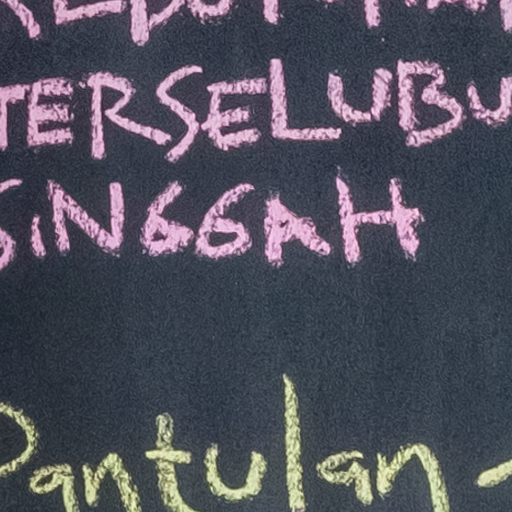 TERSELUBU
SINGGAH
Pantulan -